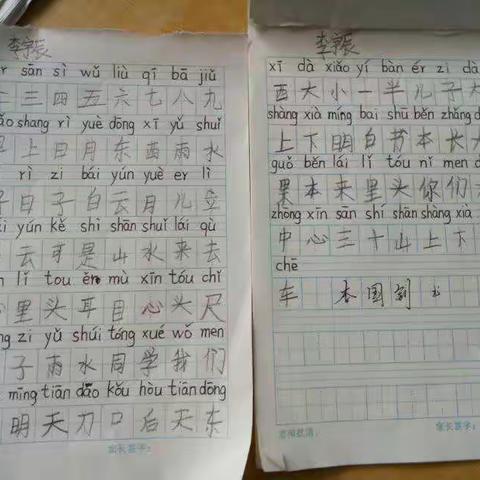 李宇辰
sān sì wǔ liù qī bā jiǔ
三 四 五 六 七 八 九
shang rì yuè dōng xī yǔ shuǐ
上 日 月 东 西 雨 水
rì zi bái yún yuè er lì
日 子 白 云 月 儿 立
yún kě shì shān shuǐ lái qù
云 可 是 山 水 来 去
lǐ tou ěr mù xīn tóu chǐ
里 头 耳 目 心 头 尺
zi yǔ shuǐ tóng xué wǒ men
子 雨 水 同 学 我 们
míng tiān dāo kǒu hòu tiān dōng
明 天 刀 口 后 天 东
家长签字：
李宇辰
xī dà xiǎo yí bàn ér zi dà
西 大 小 一 半 儿 子 大
shàng xià míng bai shū běn zhǎng dà
上 下 明 白 书 本 长 大
guǒ běn lái lǐ tóu nǐ men
果 本 来 里 头 你 们
zhōng xīn sān shí shān shàng xià
中 心 三 十 山 上 下
chē
车 本 国
家长签字：